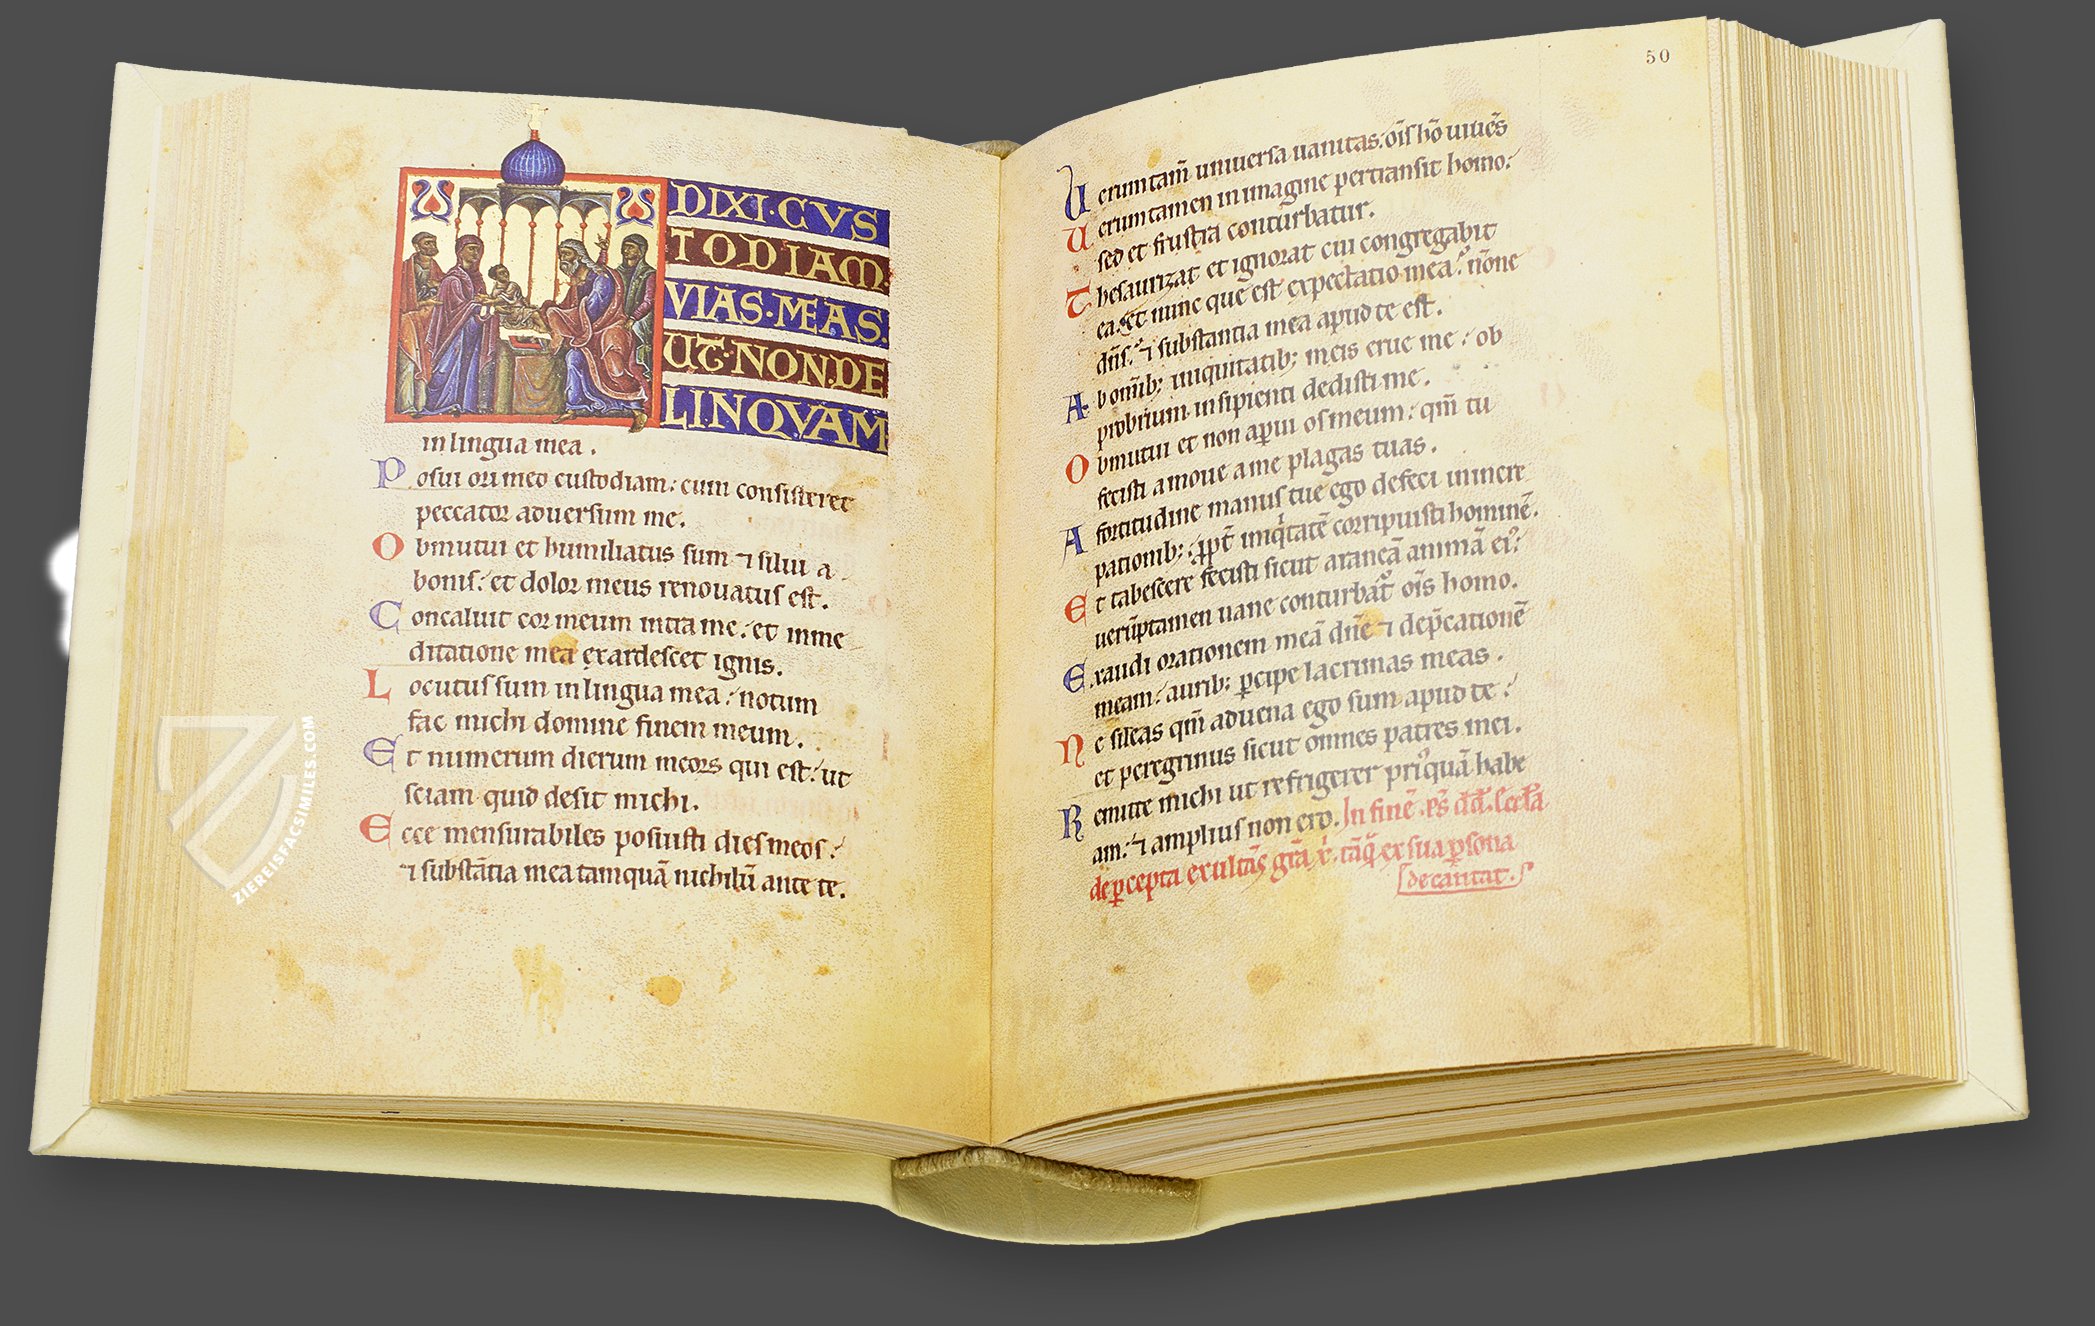 DIXI·CVS
TODIAM
VIAS·MEAS·
UT·NON·DE
LINQVAM
in lingua mea.
Posui ori meo custodiam: cum consisteret
peccator adversum me.
Obmutui et humiliatus sum ⁊ silui a
bonis: et dolor meus renouatus est.
Concaluit cor meum intra me: et in me
ditatione mea exardescet ignis.
Locutus sum in lingua mea: notum
fac michi domine finem meum.
Et numerum dierum meorum qui est: ut
sciam quid desit michi.
Ecce mensurabiles posuisti dies meos:
⁊ substãtia mea tamquã nichilũ ante te.
ZIEREISFACSIMILES.COM
50
Ueruntam̃ uniuersa uanitas: oĩs hõ uiuẽs
Ueruntamen in imagine pertransit homo:
sed et frustra conturbatur.
Thesaurizat et ignorat cui congregabit
ea. Et nunc que est expectatio mea: nõne
dñs: ⁊ substantia mea apud te est.
Ab omĩb; iniquitatib; meis erue me: ob
probrium insipienti dedisti me.
Obmutui et non aperui os meum: qm̃ tu
fecisti amoue a me plagas tuas.
A fortitudine manus tue ego defeci in incre
pationib;: ꝓpt̃ iniq̃tatẽ corripuisti hominẽ.
Et tabescere fecisti sicut araneã animã ei⁹:
uerũptamen uane conturbat̃ oĩs homo.
Exaudi orationem meã dñe ⁊ dep̃cationẽ
meam: aurib; ꝑcipe lacrimas meas.
Ne sileas qm̃ aduena ego sum apud te:
et peregrinus sicut omnes patres mei.
Remitte michi ut refrigerer pri⁹quã habe
am: ⁊ amplius non ero. In finẽ. ps̃ dd̃. eccl̃a
de ꝑcepta exultãs gr̃a x̃. tãq̃ ex sua ꝑsona
decantat.